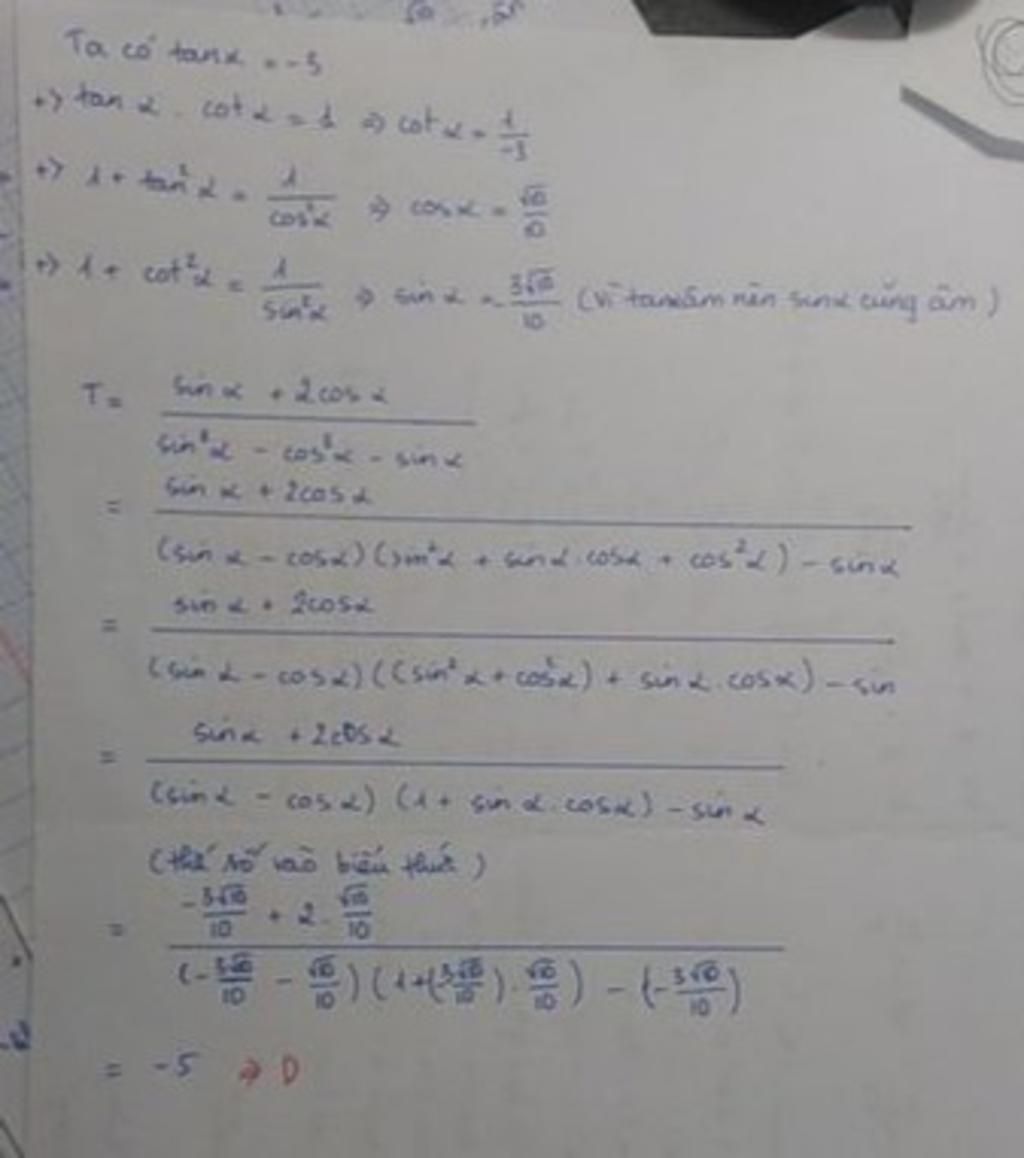 Ta có tanα = -3
+) tan α . cot α = 1 => cot α = 1/-3
+) 1 + tan²α = 1/cos²α => cosα = √10/10
+) 1 + cot²α = 1/sin²α => sin α = -3√10/10 (vì tanα âm nên sinα cũng âm)
T = sin α + 2cosα / sin³α - cos³α - sin α
= sin α + 2cosα / (sin α - cosα)(sin²α + sinα.cosα + cos²α) - sinα
= sin α + 2cosα / (sin α - cosα)((sin²α + cos²α) + sinα.cosα) - sin
= sinα + 2cosα / (sinα - cosα) (1 + sin α.cosα) - sin α
(thế số vào biểu thức)
= -3√10/10 + 2.√10/10 / (-3√10/10 - √10/10)(1+(-3√10/10).√10/10) - (-3√10/10)
= -5 => D